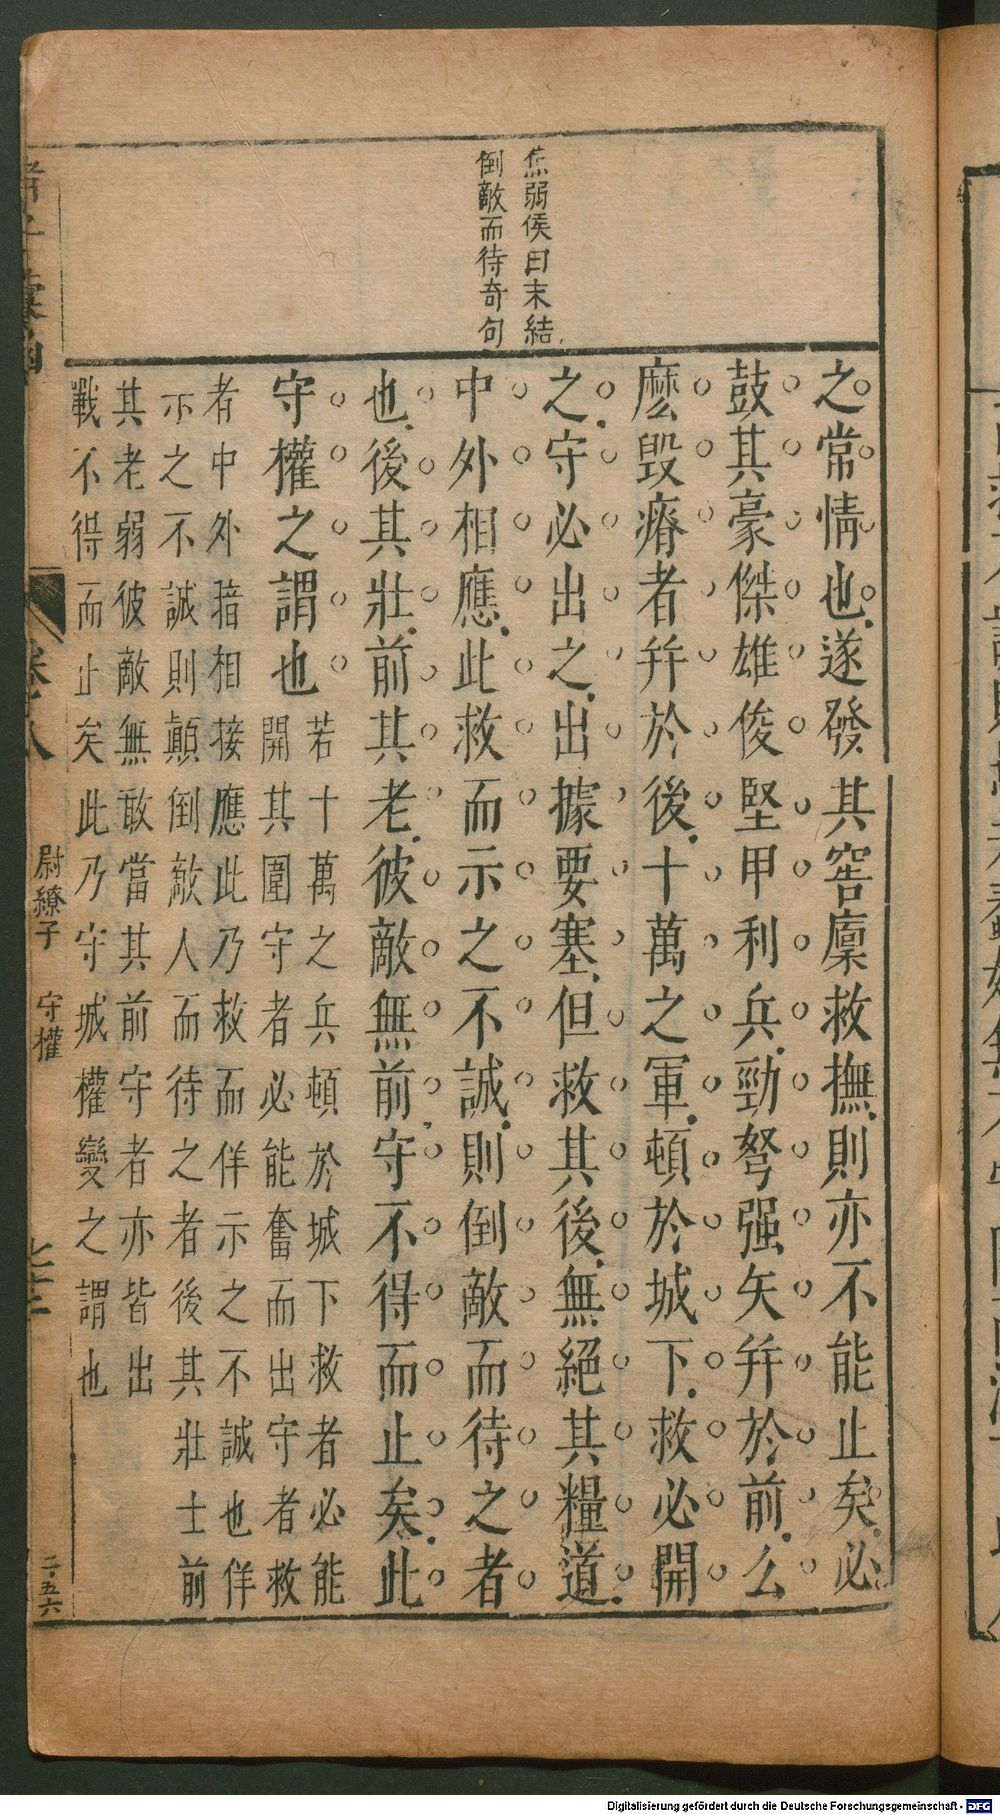 焦弱侯曰末結
倒敵而待奇句
之常情也遂發其窖廩救撫則亦不能止矣必
鼓其豪傑雄俊堅甲利兵勁弩强矢幷於前么
麽毀瘠者幷於後十萬之軍頓於城下救必開
之守必出之出據要塞但救其後無絕其糧道
中外相應此救而示之不誠則倒敵而待之者
也後其壯前其老彼敵無前守不得而止矣此
守權之謂也
若十萬之兵頓於城下救者必能
開其圍守者必能奮而出守者救
者中外暗相接應此乃救而佯示之不誠也佯
示之不誠則顛倒敵人而待之者後其壯士前
其老弱彼敵無敢當其前守者亦皆出
戰不得而止矣此乃守城權變之謂也
諸子彙函
卷八
尉繚子 守權
二五六
Digitalisierung gefördert durch die Deutsche Forschungsgemeinschaft - DFG